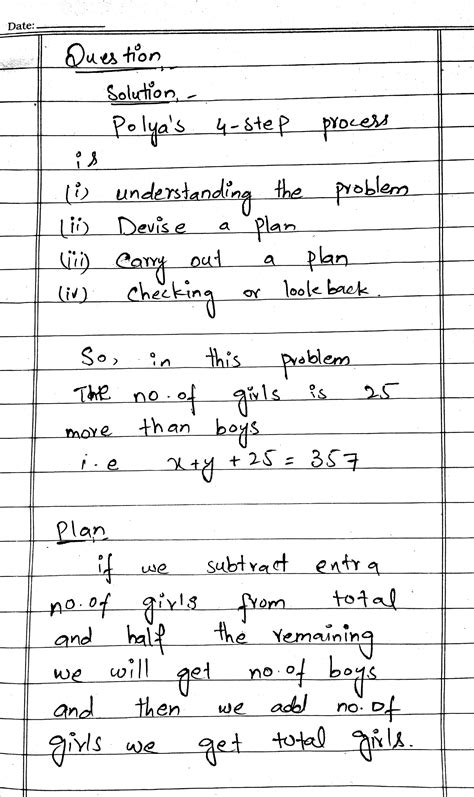 Date:
Question
Solution, -
Polya's 4-step process
is
(i) understanding the problem
(ii) Devise a plan
(iii) Carry out a plan
(iv) checking or look back.
So, in this problem
The no. of girls is 25
more than boys
i.e x+y+25 = 357
Plan
if we subtract entra
no. of girl's from total
and half the remaining
we will get no. of boys
and then we add no. of
girls we get total girls.